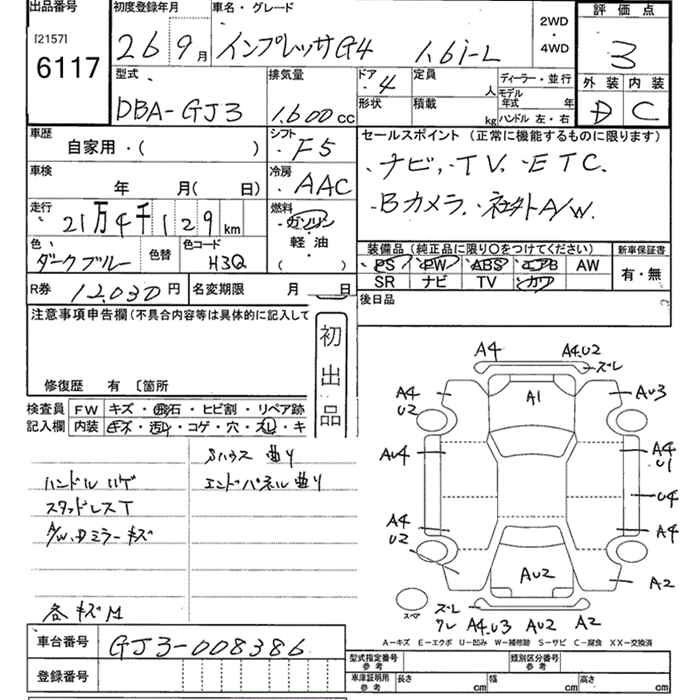 出品番号 初度登録年月 車名・グレード 2WD・4WD 評価点
[2157]
6117 26 9月 インプレッサG4 1.6i-L 3
型式 排気量 ドア 4 定員 人 ディーラー・並行 外装 内装
DBA-GJ3 1,600cc 形状 積載 kg モデル年式 年 D C
ハンドル 左・右
車歴 シフト セールスポイント(正常に機能するものに限ります)
自家用・( ) ・F5 ・ナビ,・TV,・ETC.
車検 冷房 ・Bカメラ.・社外A/W.
年 月( 日) ・AAC
走行 燃料
21万4千129km ・ガソリン
軽・油
( )
色 色替 色コード 装備品(純正品に限り○をつけてください) 新車保証書
ダークブルー H3Q PS PW ABS エアB AW 有・無
SR ナビ TV カワ
R券 12,030円 名変期限 月 日 後日品
注意事項申告欄(不具合内容等は具体的に記入して
初出品
修復歴 有 〔箇所
検査員 FW キズ・飛石・ヒビ割・リペア跡
記入欄 内装 キズ・汚れ・コゲ・穴・スレ・キ
A4 A4.U2
ズレ
A4 U2 A1 AU3
AU4 A4 U1
U4
A4 U2 A4
AU2 A2
スペア
ズレ
ワレ A4.U3 AU2 A2
Sハウス 曲り
ハンドル ハゲ エンドパネル曲り
スタッドレスT
A/W.Dミラーキズ
各キズM
A-キズ E-エクボ U-凹み W-補修跡 S-サビ C-腐食 XX-交換済
車台番号 GJ3-008386
登録番号
型式指定番号 参考 類別区分番号 参考
車庫証明用 参考 長さ cm 幅 cm 高さ cm